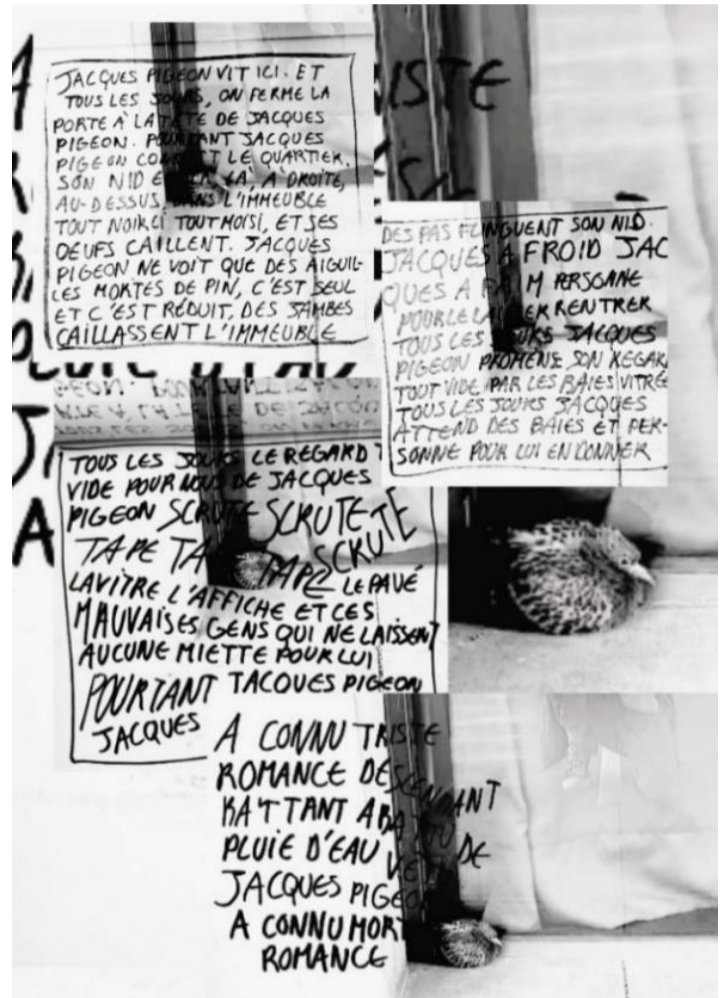 JACQUES PIGEON VIT ICI. ET
TOUS LES JOURS, ON FERME LA
PORTE À LA TÊTE DE JACQUES
PIGEON. POURTANT JACQUES
PIGEON CONNAIT LE QUARTIER.
SON NID EST LÀ, À DROITE,
AU-DESSUS, DANS L'IMMEUBLE
TOUT NOIRCI TOUT MOISI, ET SES
OEUFS CAILLENT. JACQUES
PIGEON NE VOIT QUE DES AIGUIL-
LES MORTES DE PIN, C'EST SEUL
ET C'EST RÉDUIT, DES JAMBES
CAILLASSENT L'IMMEUBLE
DES PAS FLINGUENT SON NID.
JACQUES A FROID JAC
QUES A FAIM PERSONNE
POUR LE LAISSER RENTRER
TOUS LES JOURS JACQUES
PIGEON PROMÈNE SON REGAR
TOUT VIDE PAR LES BAIES VITRÉ
TOUS LES JOURS JACQUES
ATTEND DES BAIES ET PER-
SONNE POUR LUI EN DONNER
TOUS LES JOURS LE REGARD
VIDE POUR NOUS DE JACQUES
PIGEON SCRUTE SCRUTE TE
TAPE TA TAPE SCRUTE
LA VITRE L'AFFICHE ET CES LE PAVÉ
MAUVAISES GENS QUI NE LAISSENT
AUCUNE MIETTE POUR LUI
POURTANT JACQUES PIGEON
JACQUES
A CONNU TRISTE
ROMANCE DESCENDANT
BATTANT ABATTU DE
PLUIE D'EAU
JACQUES PIGEON
A CONNU MORT
ROMANCE